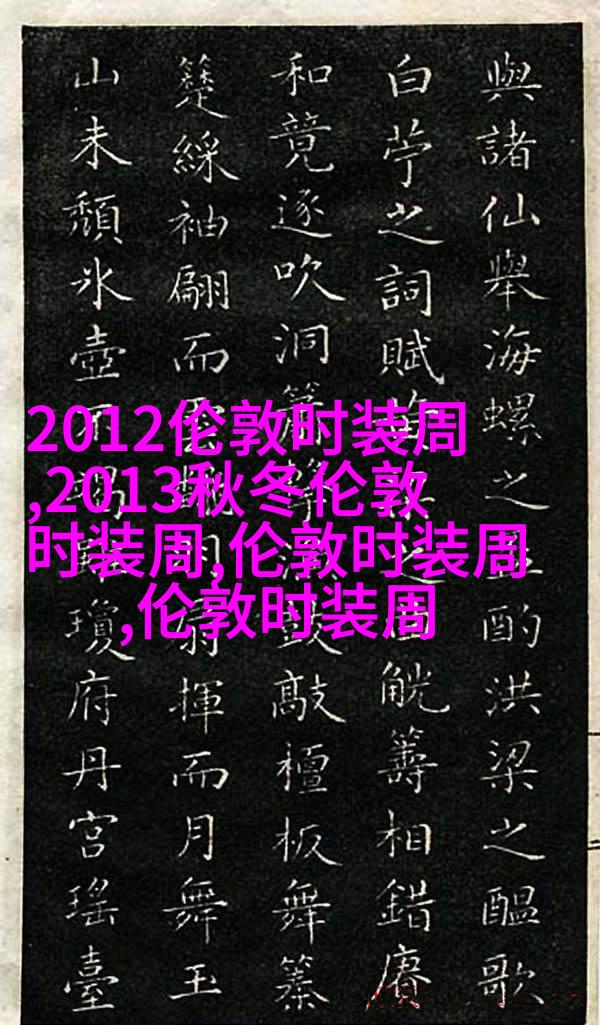 2012伦敦时装周
,2013秋冬伦敦
时装周,伦敦时装周
,伦敦时装周
與諸仙舉海螺之酌洪梁之醞歌
白苧之詞賦之觥籌相錯賡
和竟逐吹洞簫鼓敲檀板舞
綵袖翩而雲揮而月舞玉
山未頹氷壺瓊府丹宮瑤臺